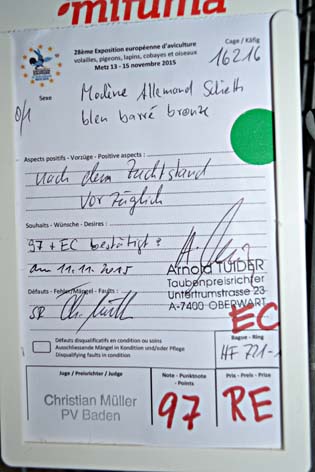 mifuma
28ème Exposition européenne d'aviculture
volailles, pigeons, lapins, cobayes et oiseaux
Metz 13 - 15 novembre 2015
Cage / Käfig
16216
Sexe
0/1
Modène Allemand Schietti
bleu barré bronze
Aspects positifs - Vorzüge - Positive aspects :
nach dem Zuchtstand
vorzüglich
Souhaits - Wünsche - Desires :
97 + EC bestätigt
am 11.11.2015
Arnold TUIDER
Taubenpreisrichter
Untertrumstrasse 23
A-7400 OBERWART
Défauts - Fehler/Mängel - Faults :
SR
EC
Défauts disqualificatifs en condition ou soins
Ausschliessende Mängel in Kondition und/oder Pflege
Disqualifying faults in condition
Bague - Ring
HF 721-1
Juge / Preisrichter / Judge
Christian Müller
PV Baden
Note - Punktnote
- Points
97
Prix - Preis - Prize
RE